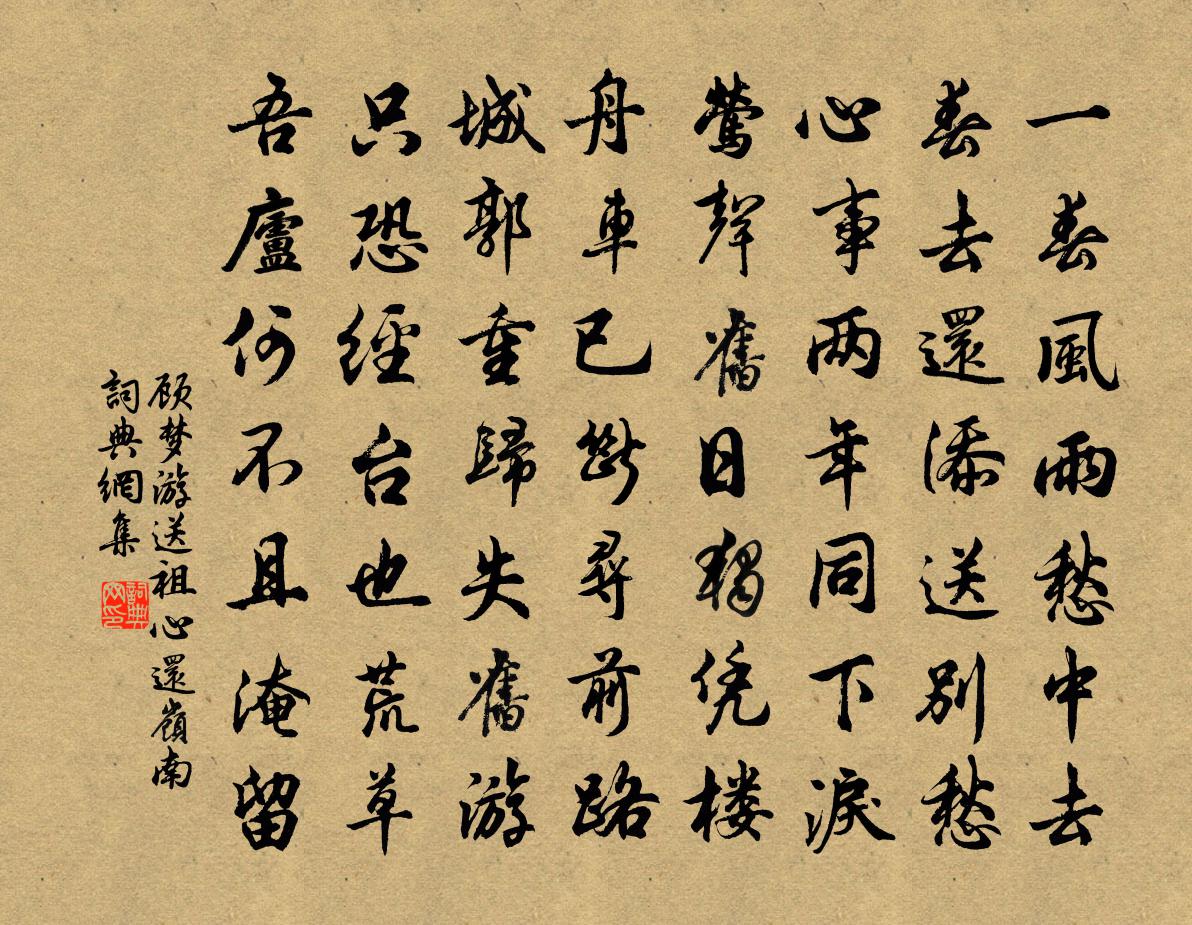 一春風雨愁中去
春去還添送別愁
心事两年同下淚
鶯聲舊日獨凭楼
舟車已斷尋前路
城郭重歸失舊游
只恐經台也荒草
吾廬何不且淹留
顾梦游送祖心還嶺南
詞典網集
詞典网印